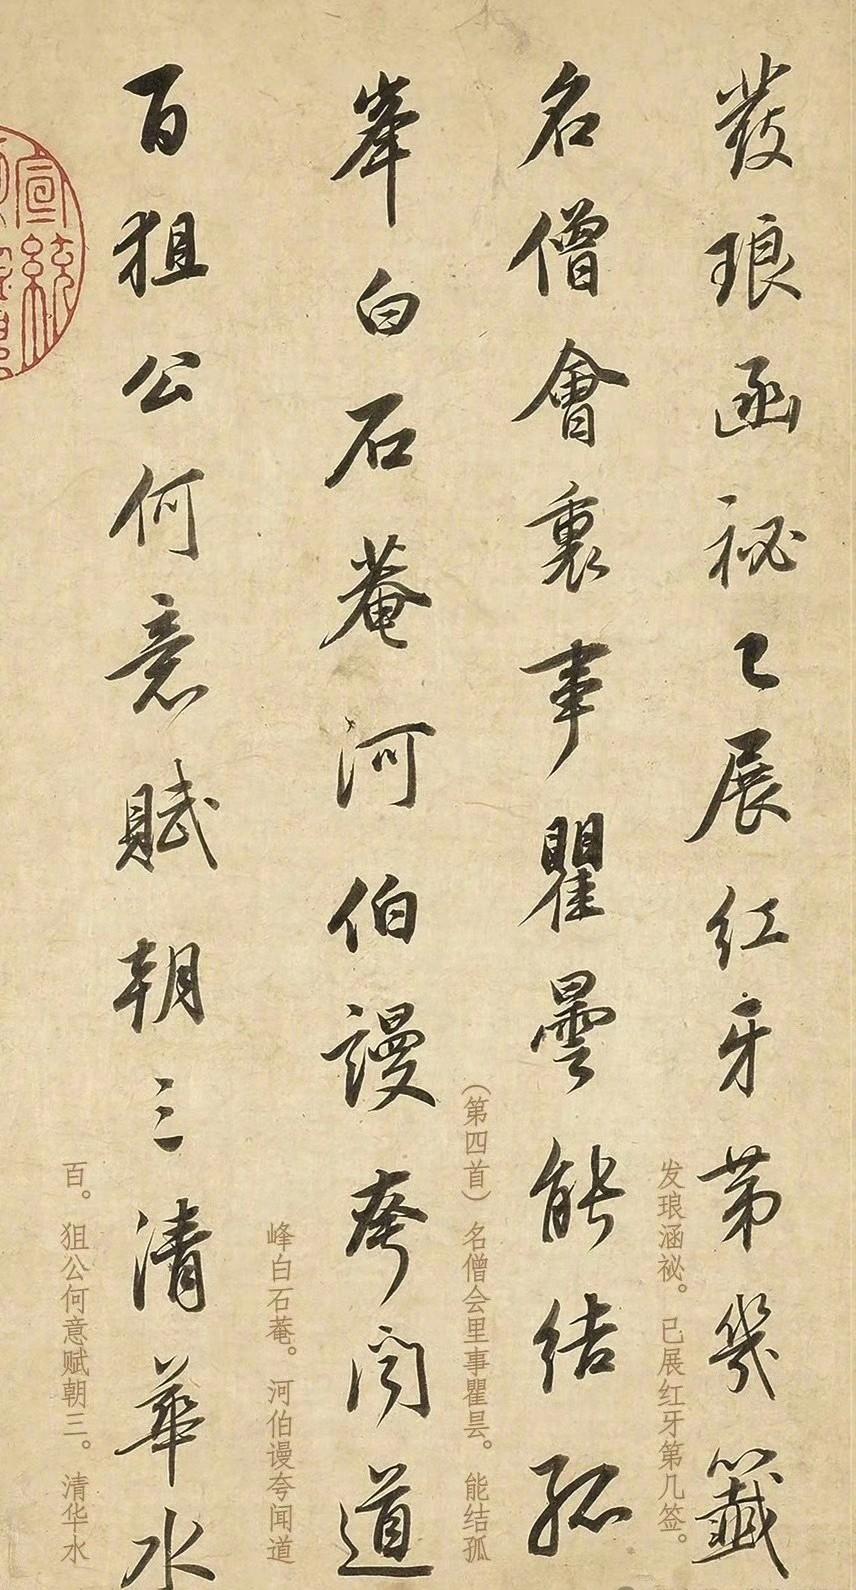 發琅函祕已展紅牙第幾籤
发琅涵祕。已展红牙第几签。
名僧會裏事瞿曇能結孤
（第四首）名僧会里事瞿昙。能结孤
峯白石菴河伯謾夸聞道
峰白石菴。河伯谩夸闻道
百狙公何意賦朝三清華水
百。狙公何意赋朝三。清华水
宣統